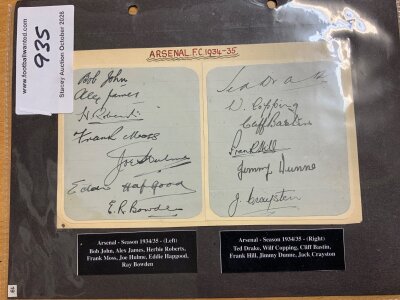 www.footballwanted.com
Stacey Auction October 2026
935
ARSENAL F.C 1934-35
Bob John
Alex James
H Roberts
Frank Moss
Joe Hulme
Eddie Hapgood
E.R. Bowden
Ted Drake
W. Copping
Cliff Bastin
Frank Hill
Jimmy Dunne
J. Crayston
Arsenal - Season 1934/35 - (Left)
Bob John, Alex James, Herbie Roberts,
Frank Moss, Joe Hulme, Eddie Hapgood,
Ray Bowden
Arsenal - Season 1934/35 - (Right)
Ted Drake, Wilf Copping, Cliff Bastin,
Frank Hill, Jimmy Dunne, Jack Crayston